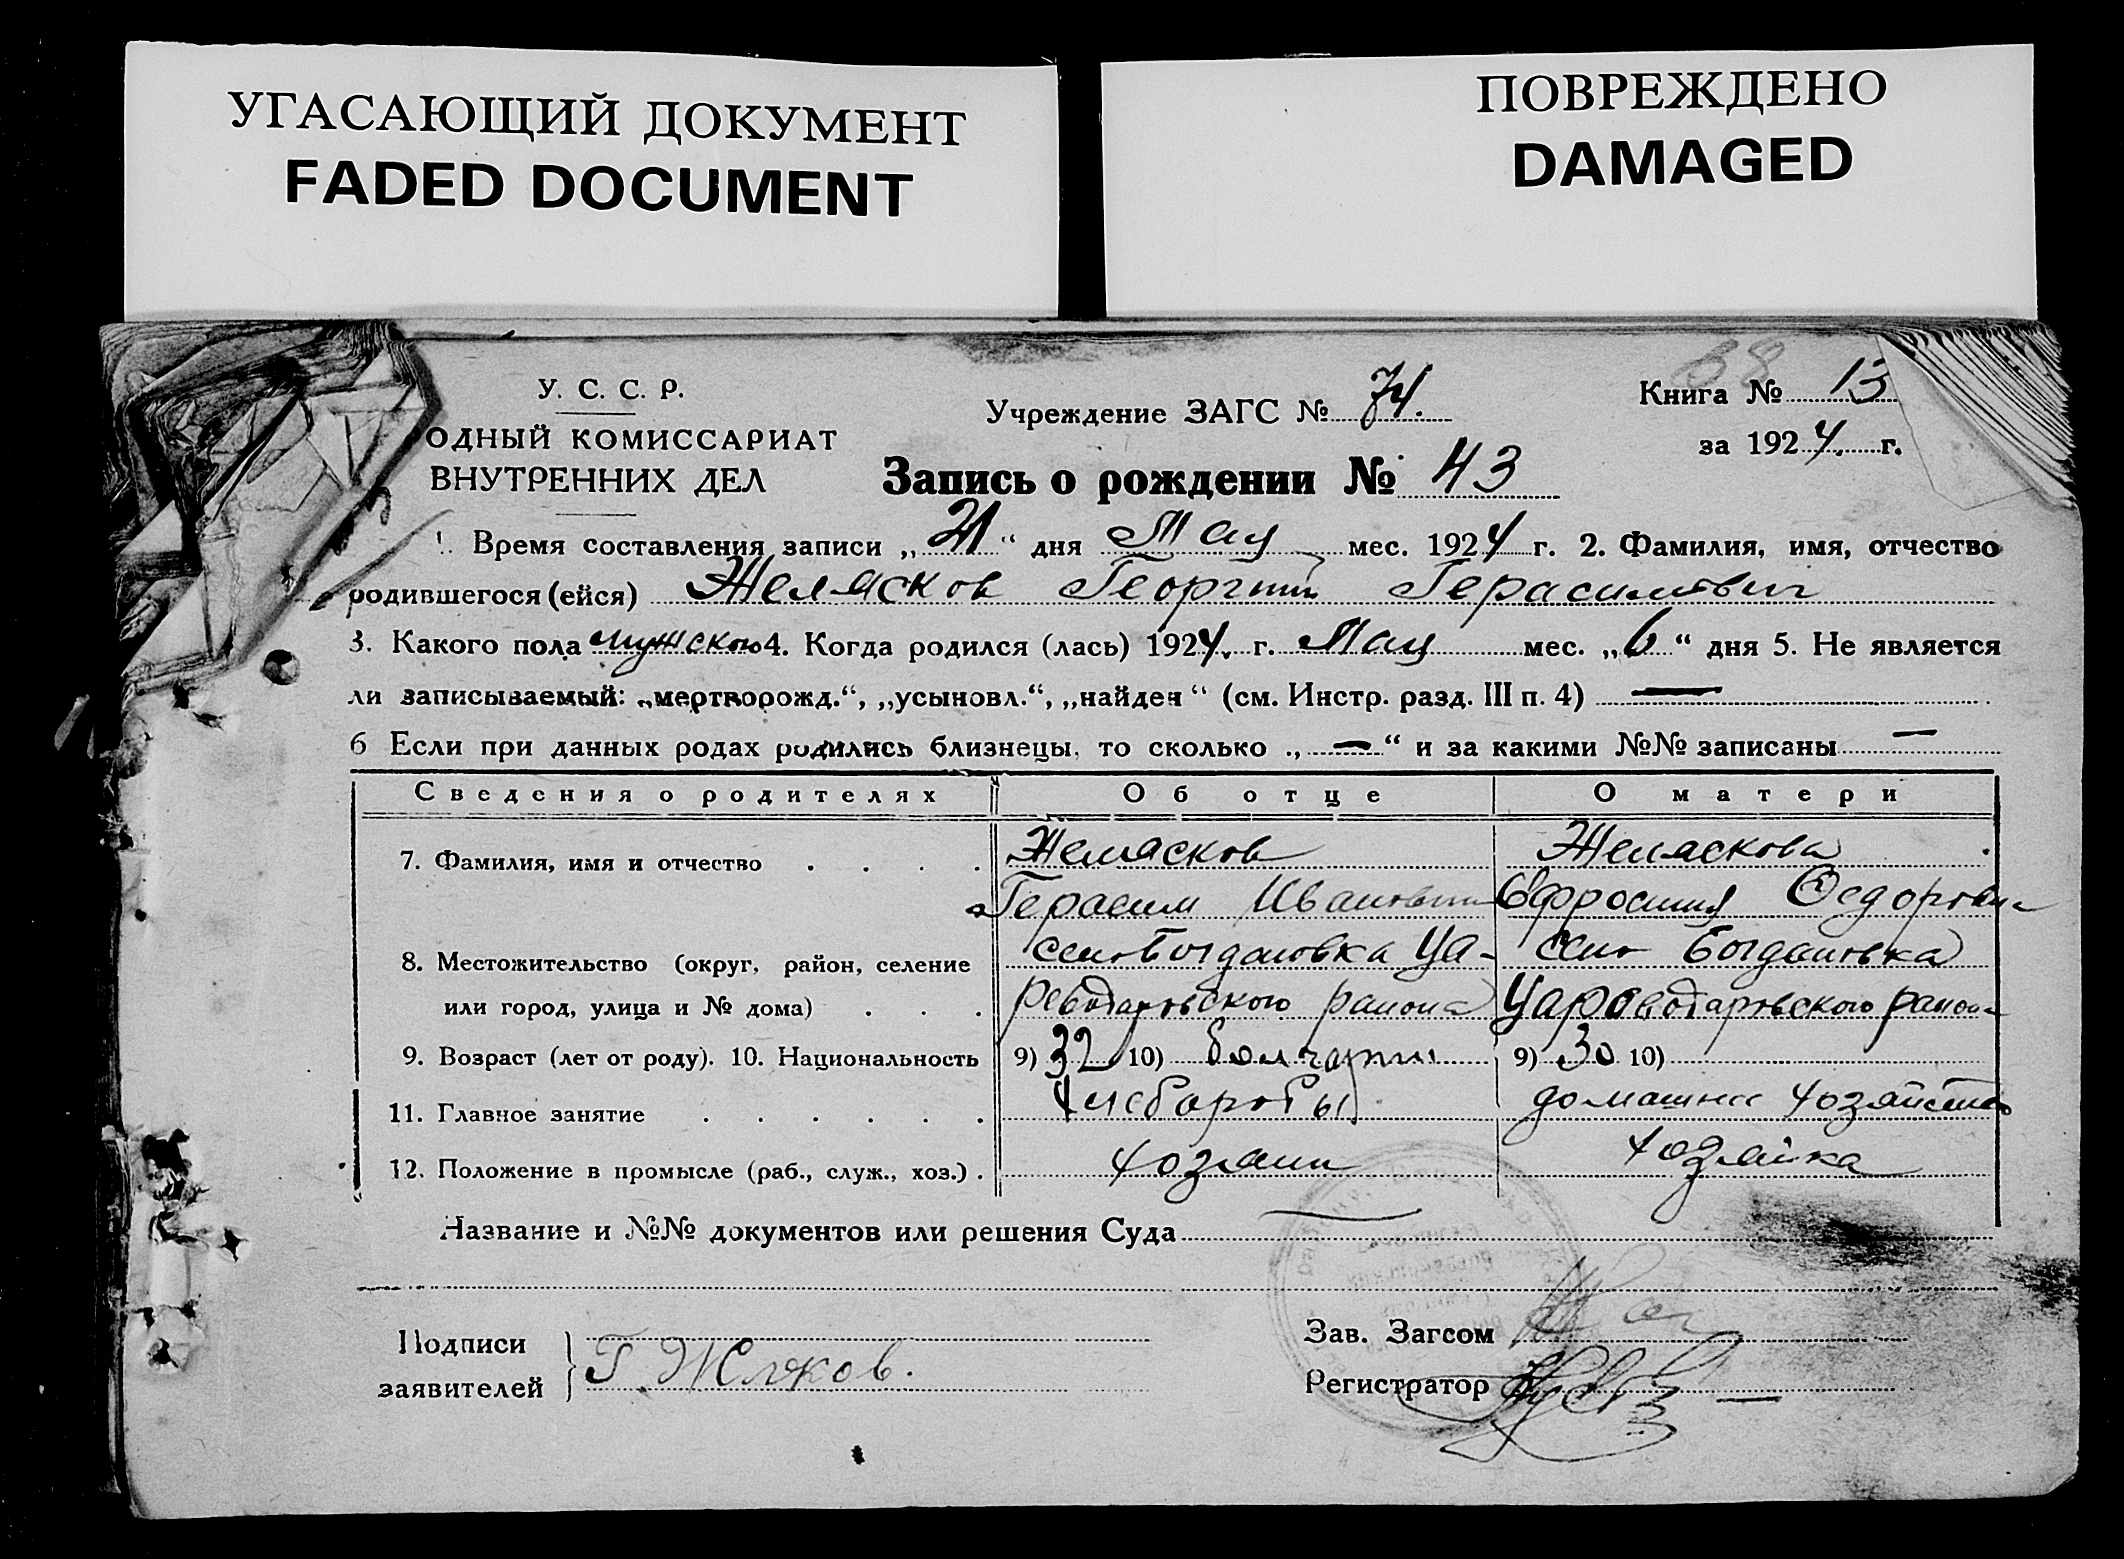 УГАСАЮЩИЙ ДОКУМЕНТ
FADED DOCUMENT
ПОВРЕЖДЕНО
DAMAGED
У. С. С. Р.
ОДНЫЙ КОМИССАРИАТ
ВНУТРЕННИХ ДЕЛ
Учреждение ЗАГС № 74.
68
Книга № 13
за 1924 г.
Запись о рождении № 43
1. Время составления записи „21“ дня Мая мес. 1924 г. 2. Фамилия, имя, отчество
родившегося (ейся) Желясков Георгий Герасимович
3. Какого пола мужского 4. Когда родился (лась) 1924. г. Мая мес. „6“ дня 5. Не является
ли записываемый: „мертворожд.“, „усыновл.“, „найден“ (см. Инстр. разд. III п. 4) —
6 Если при данных родах родились близнецы, то сколько „—“ и за какими №№ записаны —
Сведения о родителях Об отце О матери
7. Фамилия, имя и отчество . . . . Желясков Желяскова
Герасим Иванович Ефросиния Федоровна
8. Местожительство (округ, район, селение село Богдановка Ца- село Богдановка
или город, улица и № дома) . . . реводаровского района Цареводаровского района
9. Возраст (лет от роду). 10. Национальность 9) 32 10) болгарин 9) 30 10)
11. Главное занятие . . . . . . хлеборобы домашнее хозяйство
12. Положение в промысле (раб., служ., хоз.) . хозяин хозяйка
Название и №№ документов или решения Суда —
Подписи
заявителей } Г. Желяков.
Зав. Загсом
Регистратор